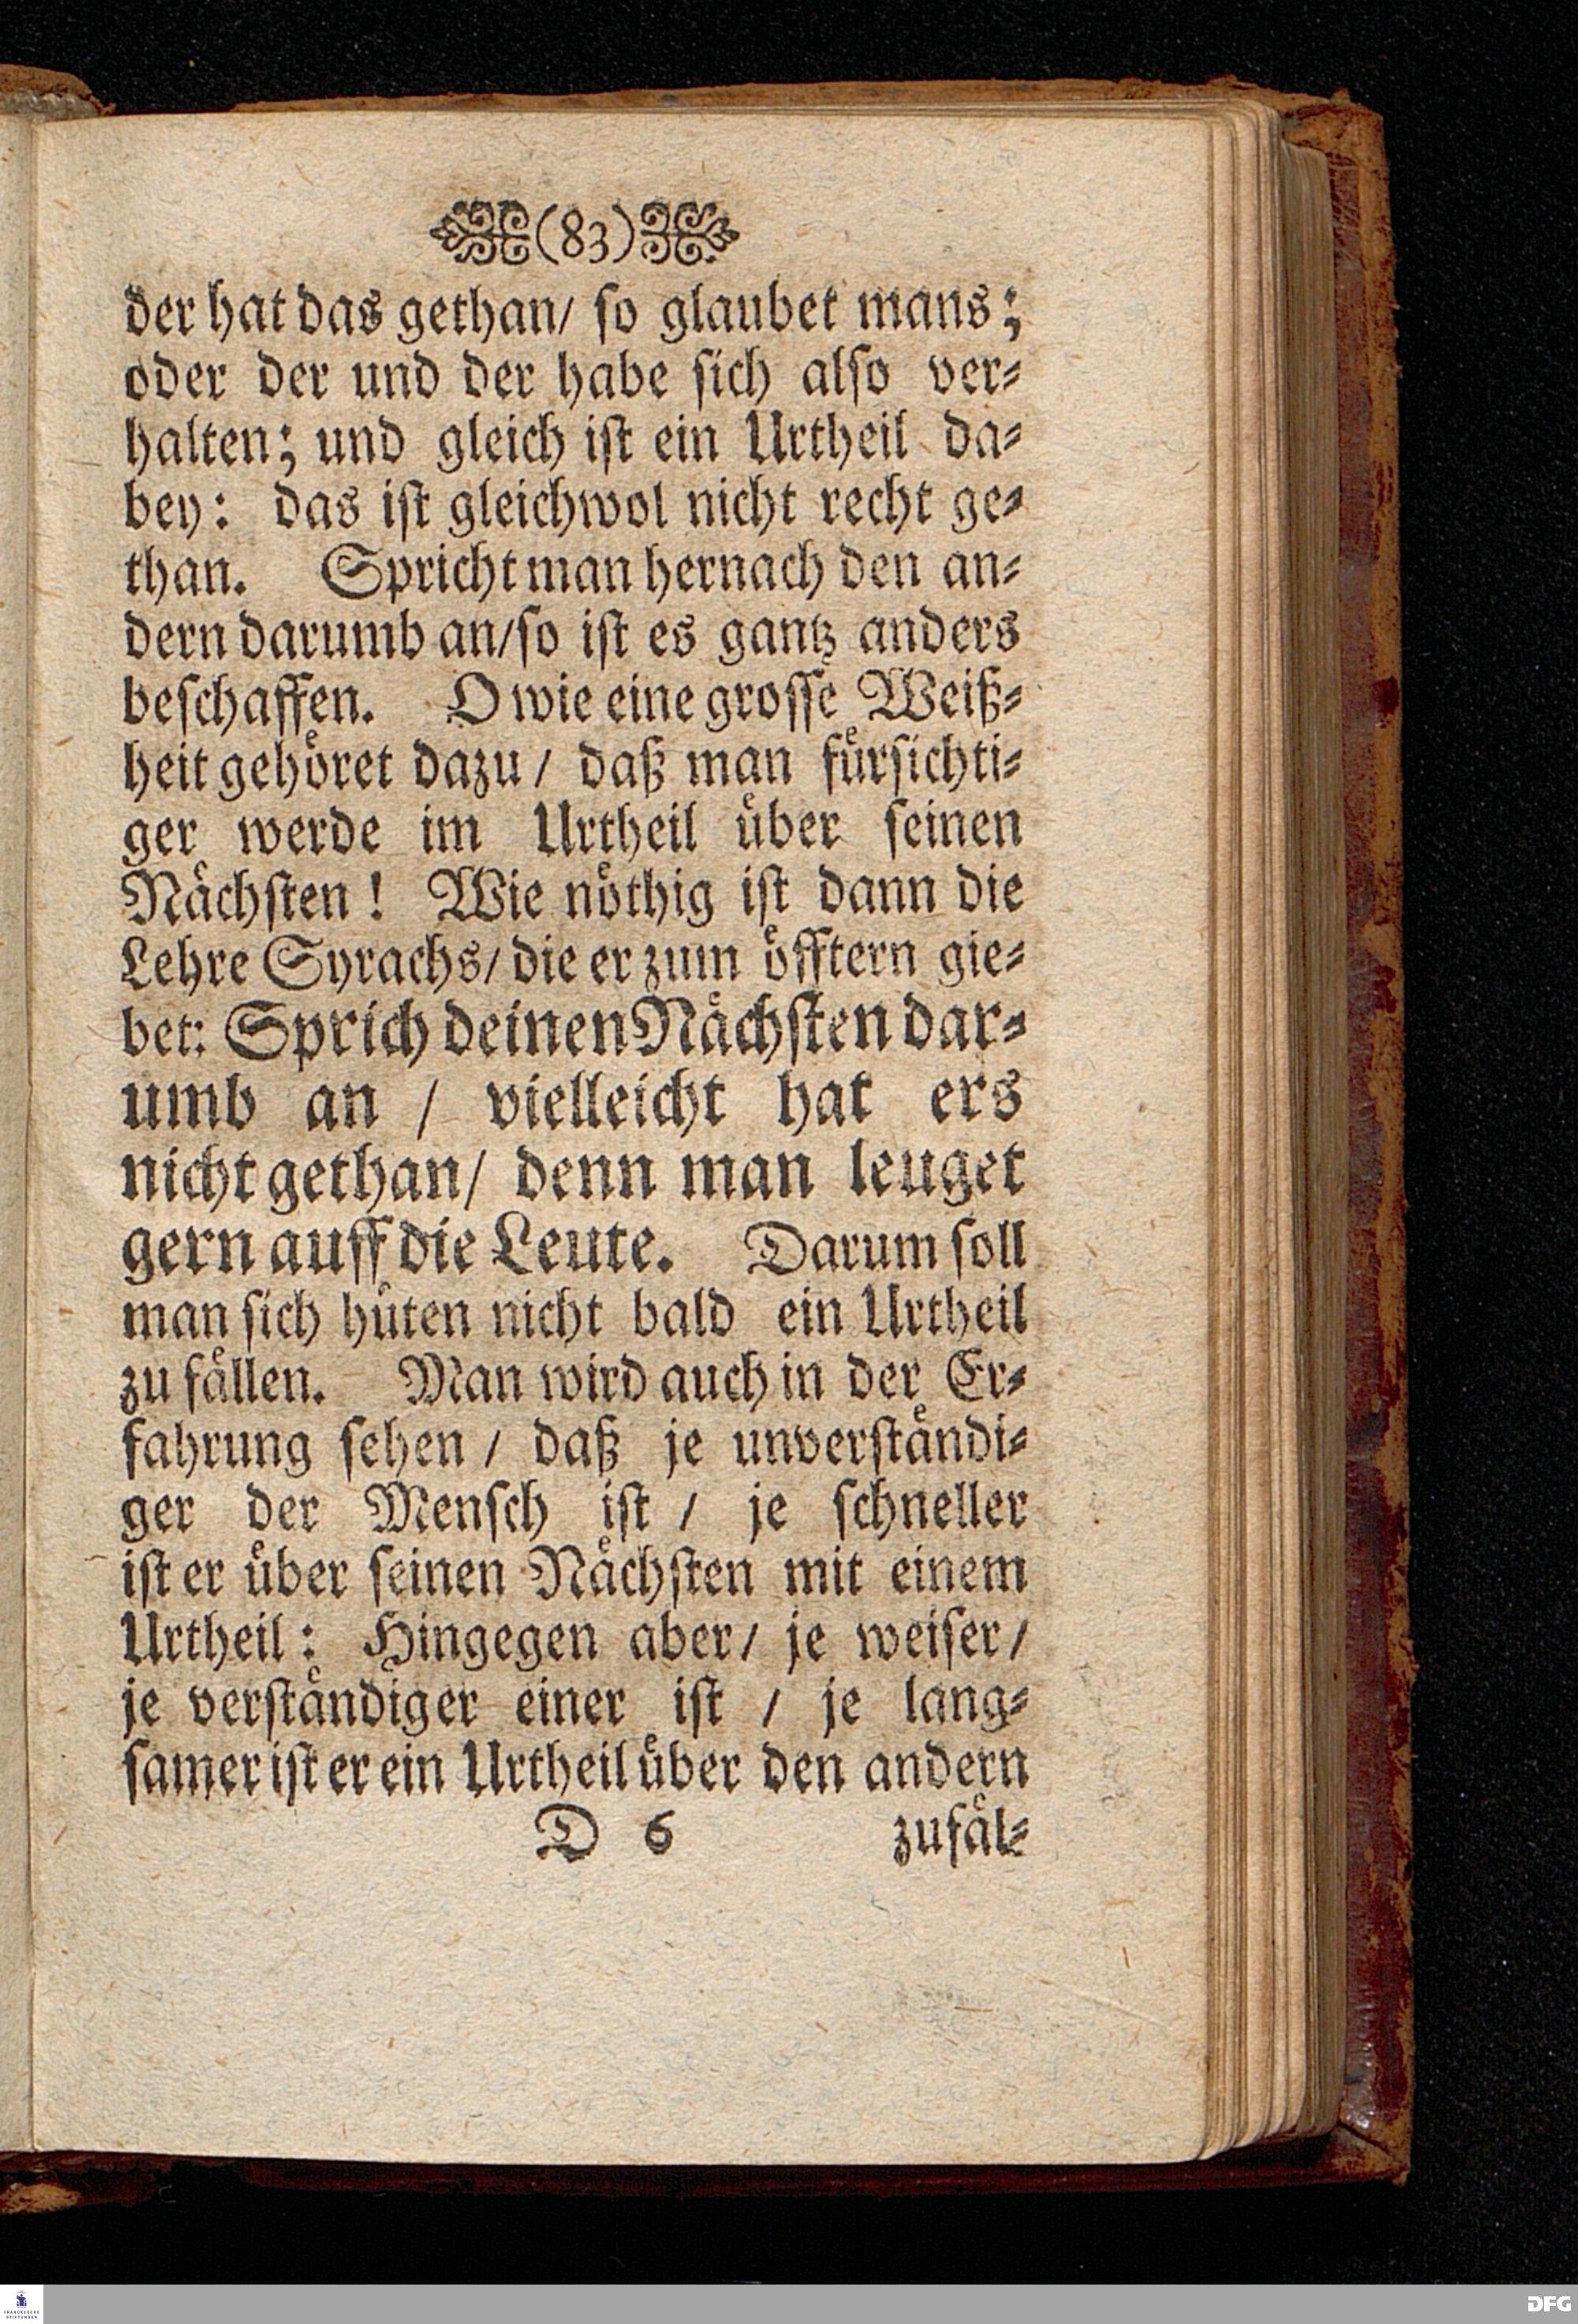 (83)
der hat das gethan/ ſo glaubet mans;
oder der und der habe ſich alſo ver⸗
halten; und gleich iſt ein Urtheil da⸗
bey: das iſt gleichwol nicht recht ge⸗
than. Spricht man hernach den an⸗
dern darumb an/ſo iſt es gantz anders
beſchaffen. O wie eine groſſe Weiß⸗
heit gehoͤret dazu/ daß man fuͤrſichti⸗
ger werde im Urtheil uͤber ſeinen
Naͤchſten! Wie noͤthig iſt dann die
Lehre Syrachs/ die er zum oͤfftern gie⸗
bet: Sprich deinen Naͤchſten dar⸗
umb an / vielleicht hat ers
nicht gethan/ denn man leuget
gern auff die Leute. Darum ſoll
man ſich huͤten nicht bald ein Urtheil
zu faͤllen. Man wird auch in der Er⸗
fahrung ſehen / daß je unverſtaͤndi⸗
ger der Menſch iſt / je ſchneller
iſt er uͤber ſeinen Naͤchſten mit einem
Urtheil: Hingegen aber/ je weiſer/
je verſtaͤndiger einer iſt / je lang⸗
ſamer iſt er ein Urtheil uͤber den andern
D 6 zufaͤl⸗
FRANCKESCHE
STIFTUNGEN
DFG